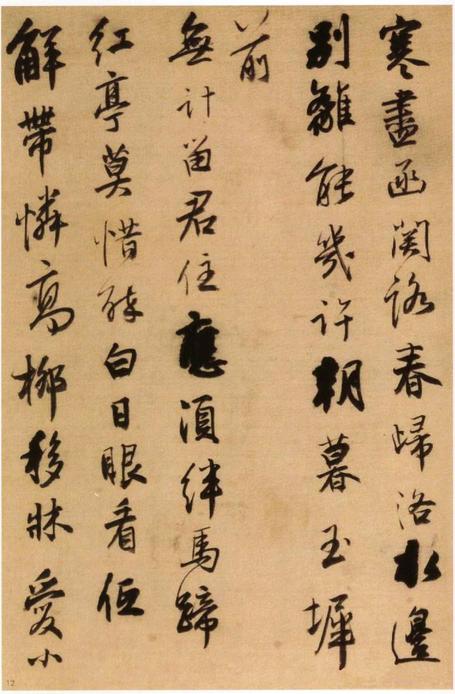 寒盡函関路春歸洛水邊
别離能幾許朝暮玉墀
前
無計留君住應須絆馬蹄
紅亭莫惜醉白日眼看低
解帶憐高柳移牀愛小
12